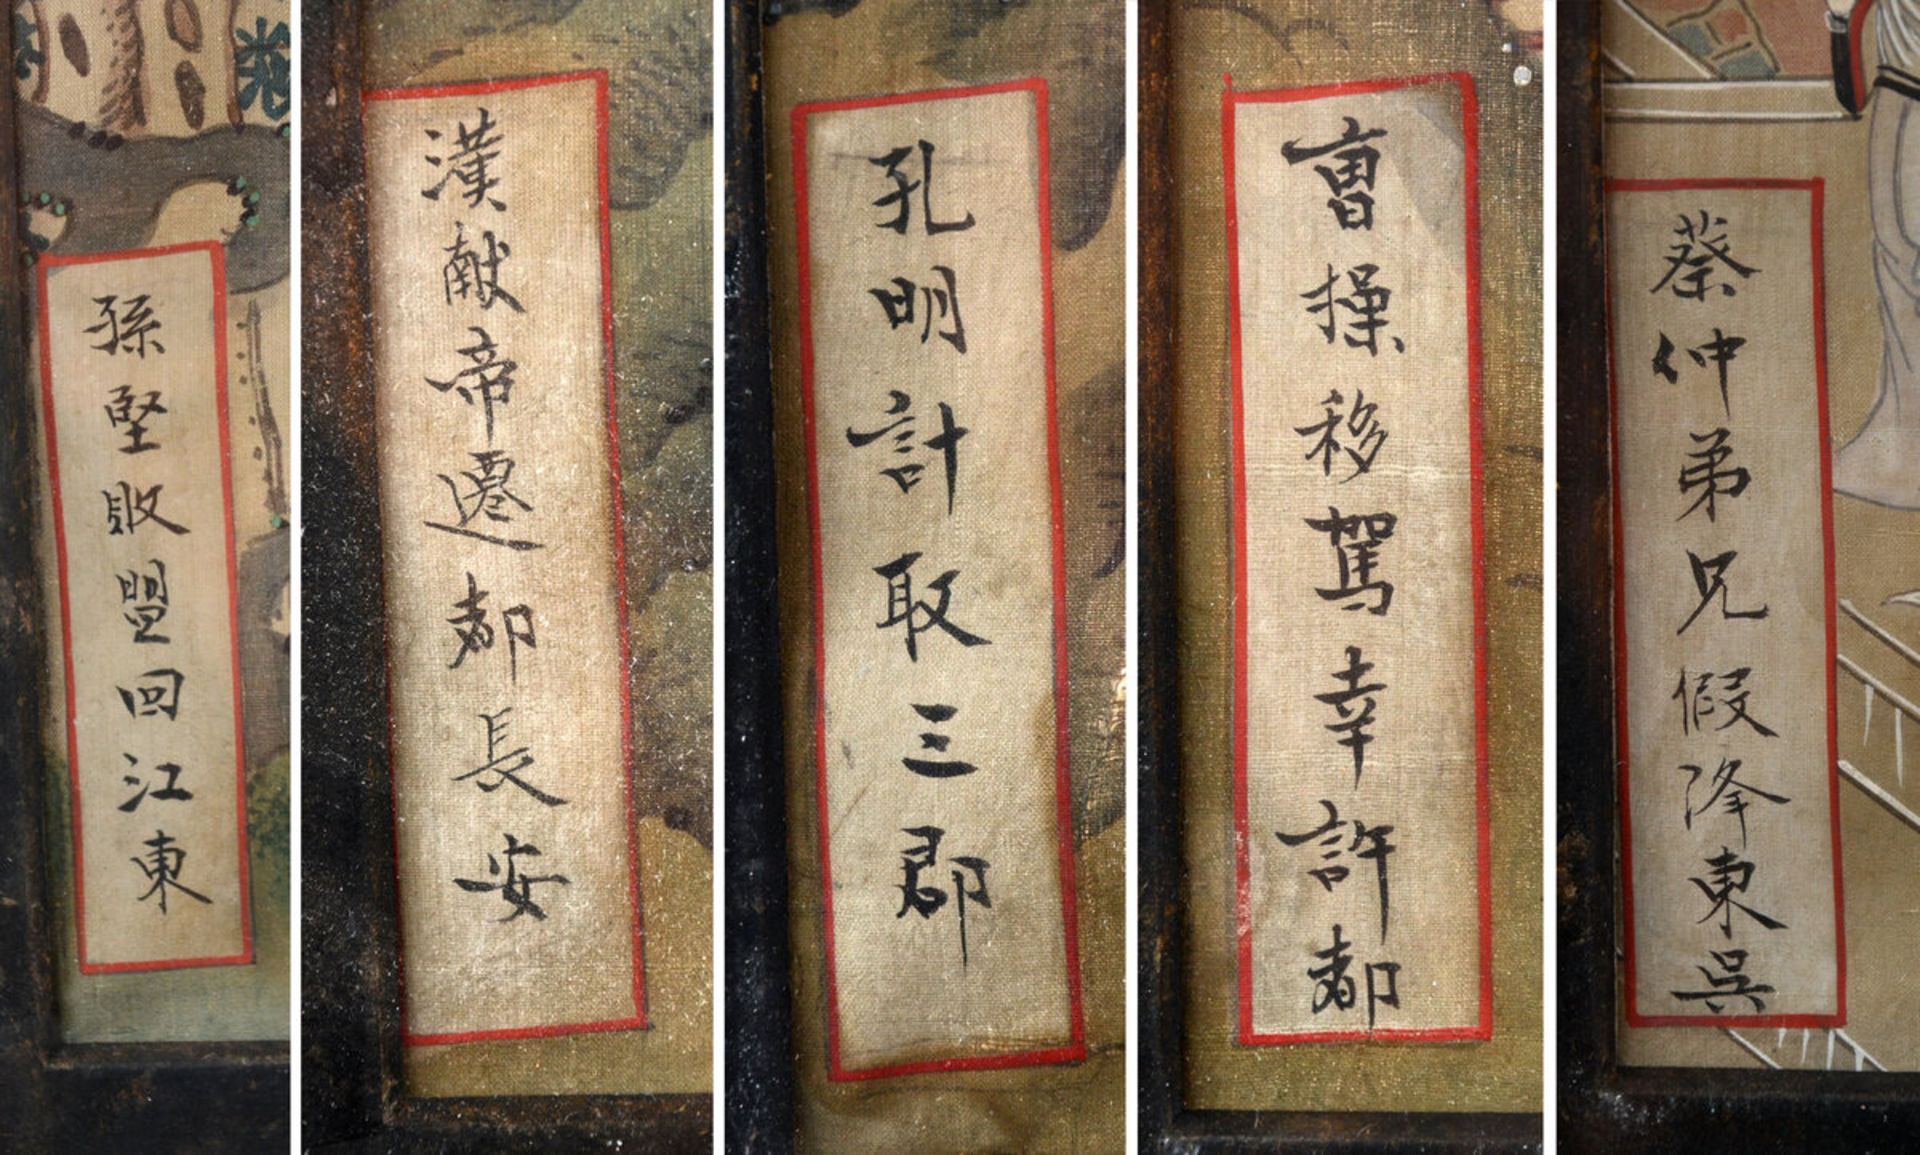 孫堅敗盟回江東
漢献帝遷都長安
孔明計取三郡
曹操移駕幸許都
蔡仲弟兄假降東吳